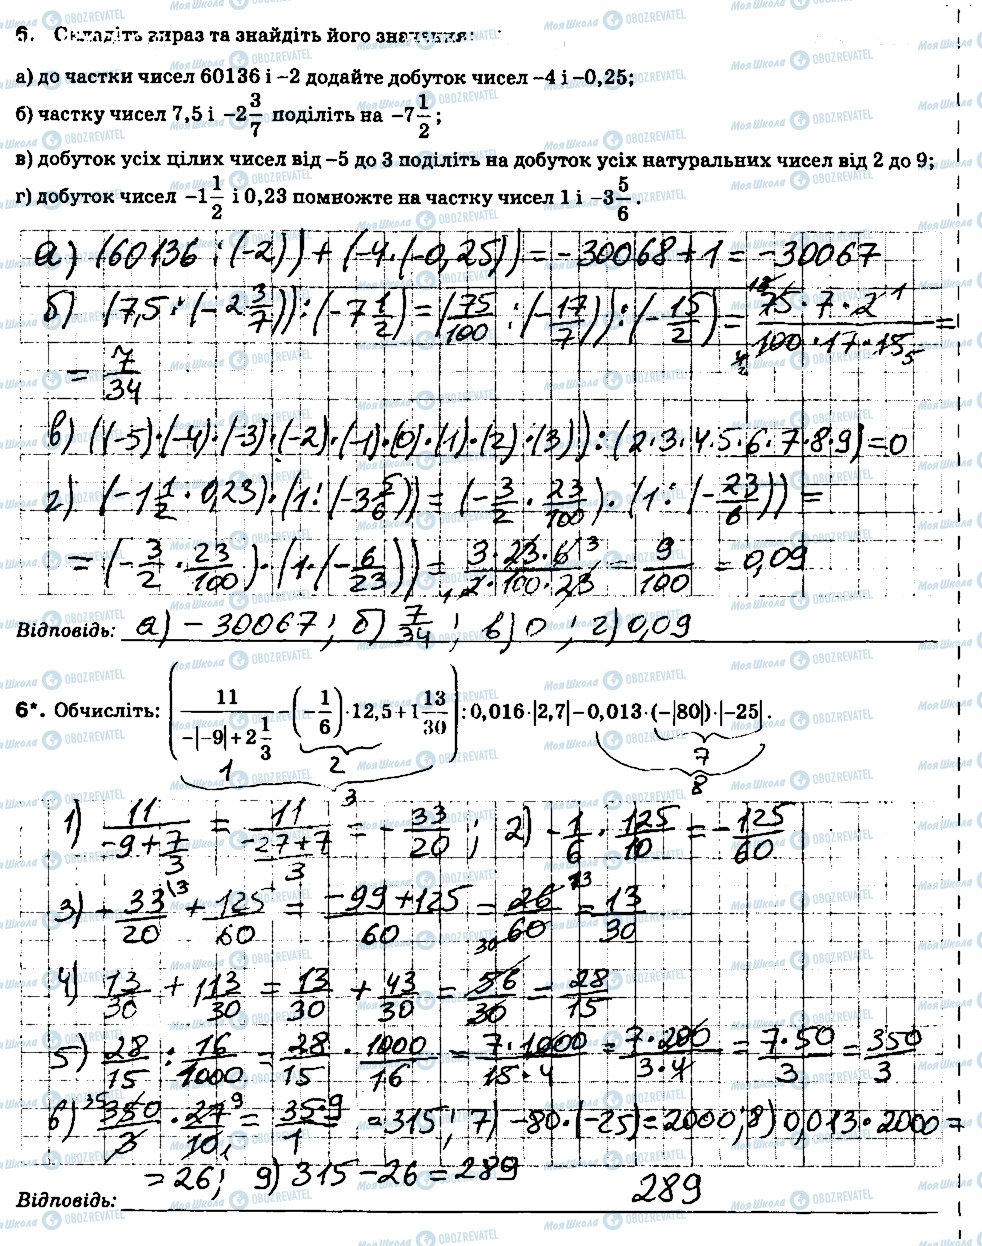 6. Складіть вираз та знайдіть його значення:
а) до частки чисел 60136 і –2 додайте добуток чисел –4 і –0,25;
б) частку чисел 7,5 і –2 3/7 поділіть на –7 1/2;
в) добуток усіх цілих чисел від –5 до 3 поділіть на добуток усіх натуральних чисел від 2 до 9;
г) добуток чисел –1 1/2 і 0,23 помножте на частку чисел 1 і –3 5/6.
а) (60136 : (-2)) + (-4·(-0,25)) = -30068+1 = -30067
б) (7,5 : (-2 3/7)) : (-7 1/2) = (75/100 : (-17/7)) : (-15/2) = 75·7·2/100·17·15 =
= 7/34
в) ((-5)·(-4)·(-3)·(-2)·(-1)·(0)·(1)·(2)·(3)) : (2·3·4·5·6·7·8·9) = 0
г) (-1 1/2 · 0,23)·(1 : (-3 5/6)) = (-3/2 · 23/100)·(1 : (-23/6)) =
= (-3/2 · 23/100)·(1·(-6/23)) = 3·23·6/2·100·23 = 9/100 = 0,09
Відповідь: а) -30067; б) 7/34; в) 0; г) 0,09
6*. Обчисліть: (11/(-|-9|+2 1/3) - (-1/6)·12,5+1 13/30) : 0,016·|2,7|–0,013·(–|80|)·|–25|.
1 2 7
8
1) 11/(-9+7/3) = 11/((-27+7)/3) = -33/20; 2) -1/6 · 125/10 = -125/60
3) + 33/20 + 125/60 = (-99+125)/60 = 26/60 = 13/30
4) 13/30 + 1 13/30 = 13/30 + 43/30 = 56/30 = 28/15
5) 28/15 : 16/1000 = 28/15 · 1000/16 = 7·1000/15·4 = 7·200/3·4 = 7·50/3 = 350/3
6) 350/3 · 27/10 = 35·9/1 = 315; 7) -80·(-25) = 2000; 8) 0,013·2000 =
= 26; 9) 315-26 = 289
Відповідь: 289